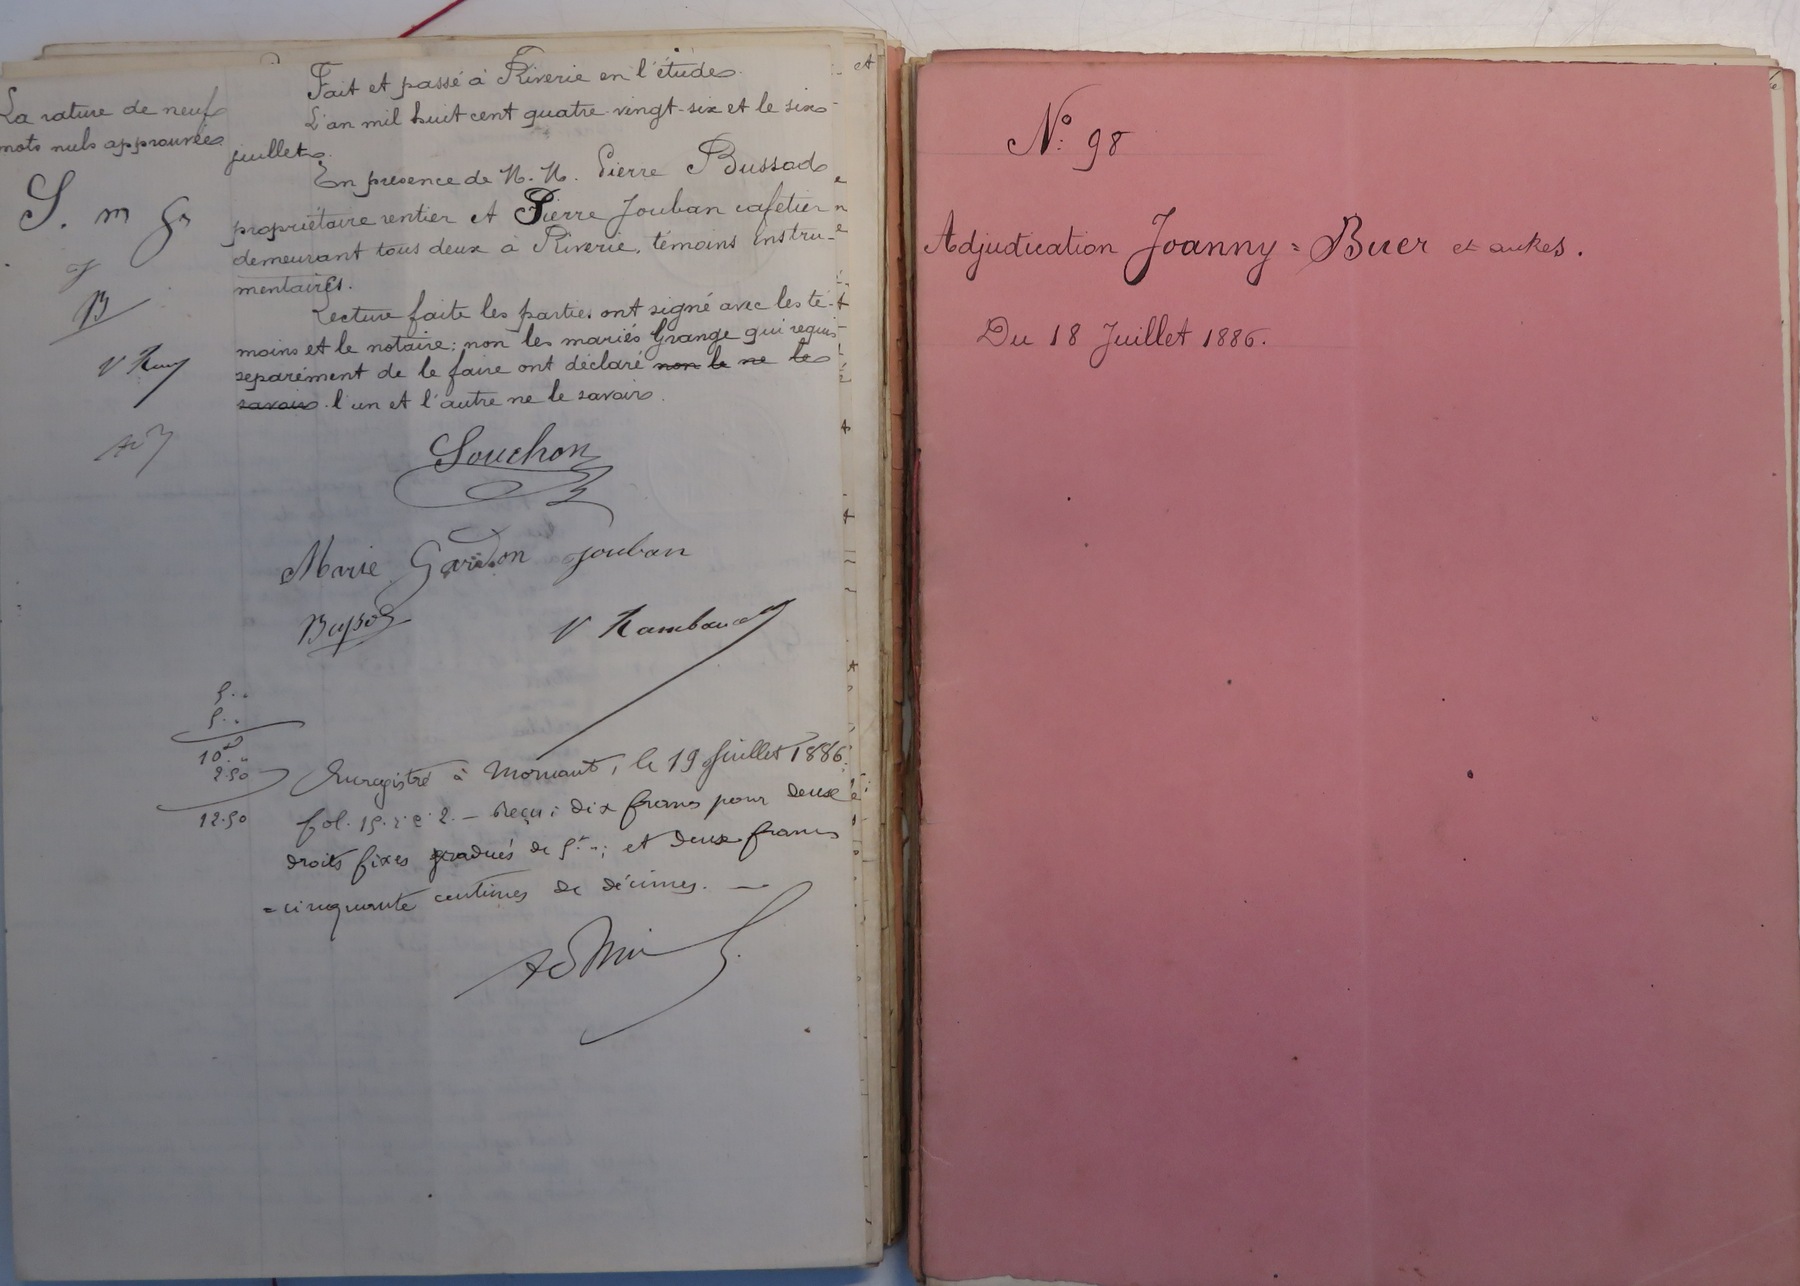 Fait et passé à Riverie en l'étude.
L'an mil huit cent quatre-vingt-six et le six
juillet.
En présence de M. M. Pierre Bussod
propriétaire rentier et Pierre Jouban cafetier
demeurant tous deux à Riverie, témoins instru-
mentaires.
Lecture faite les parties ont signé avec les té-
moins et le notaire; non les mariés Grange qui requis
séparément de le faire ont déclaré non le ne le
savoir l'un et l'autre ne le savoir.
La rature de neuf
mots nuls approuvée
S. m G
J
B
V Ram
Souchon
Marie Garidon Jouban
Bussod
V Rambaud
5 "
5 "
10 "
2.50
12.50
Enregistré à Mornant, le 19 Juillet 1886,
fol. 15. r. c. 2. — Reçu : dix francs pour deux
droits fixes gradués de 5f "; et deux francs
=cinquante centimes de décimes. —
N° 98
Adjudication Joanny = Buer et autres.
Du 18 Juillet 1886.